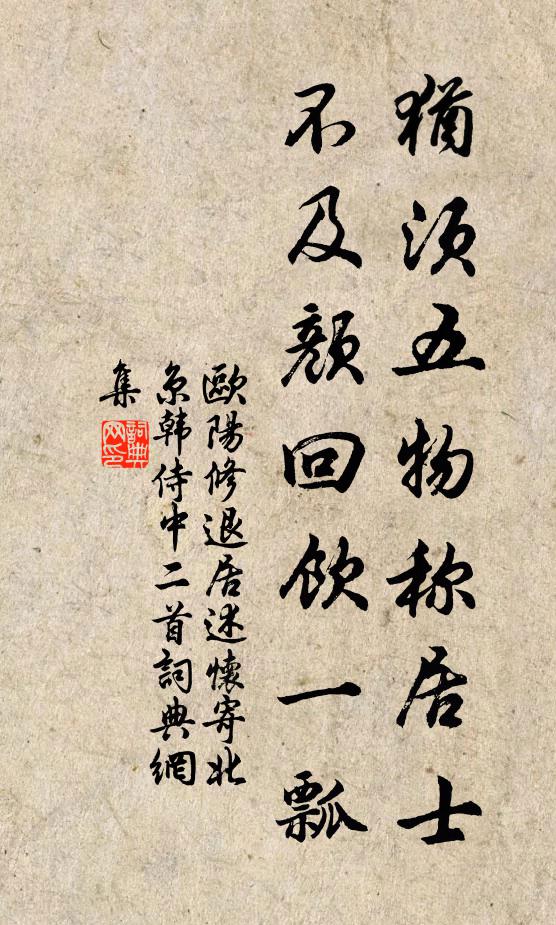 猶須五物称居士
不及顏回飲一瓢
歐陽修退居述懷寄北
京韓侍中二首詞典網
集
詞典
网印